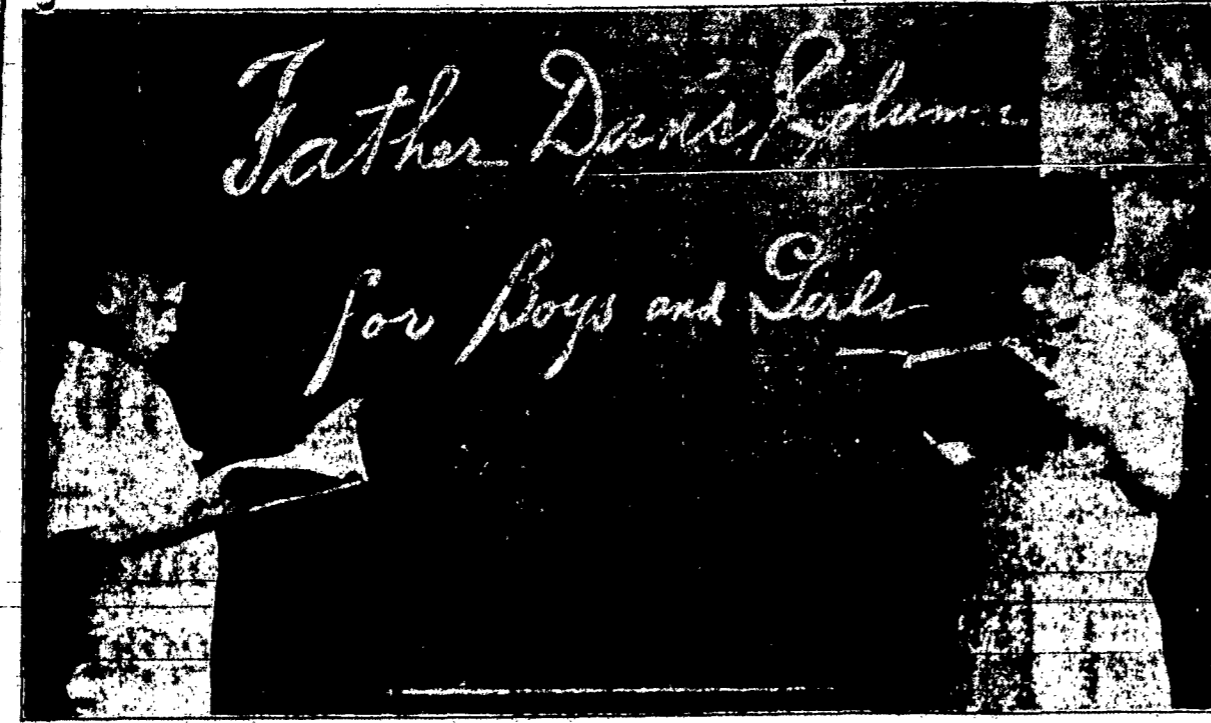 Father Dan's Kolumn
for Boys and Girls